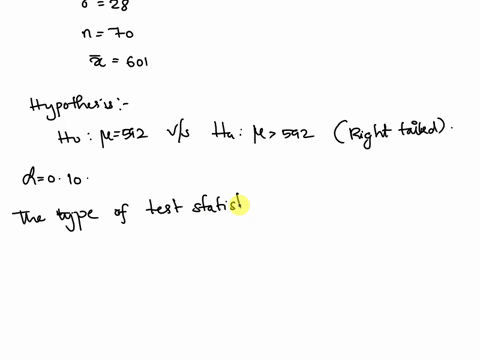 σ = 28
n = 70
x̄ = 601
Hypothesis:-
H₀ : μ=592 v/s Ha : μ > 592 (Right tailed).
α=0.10.
The type of test statist